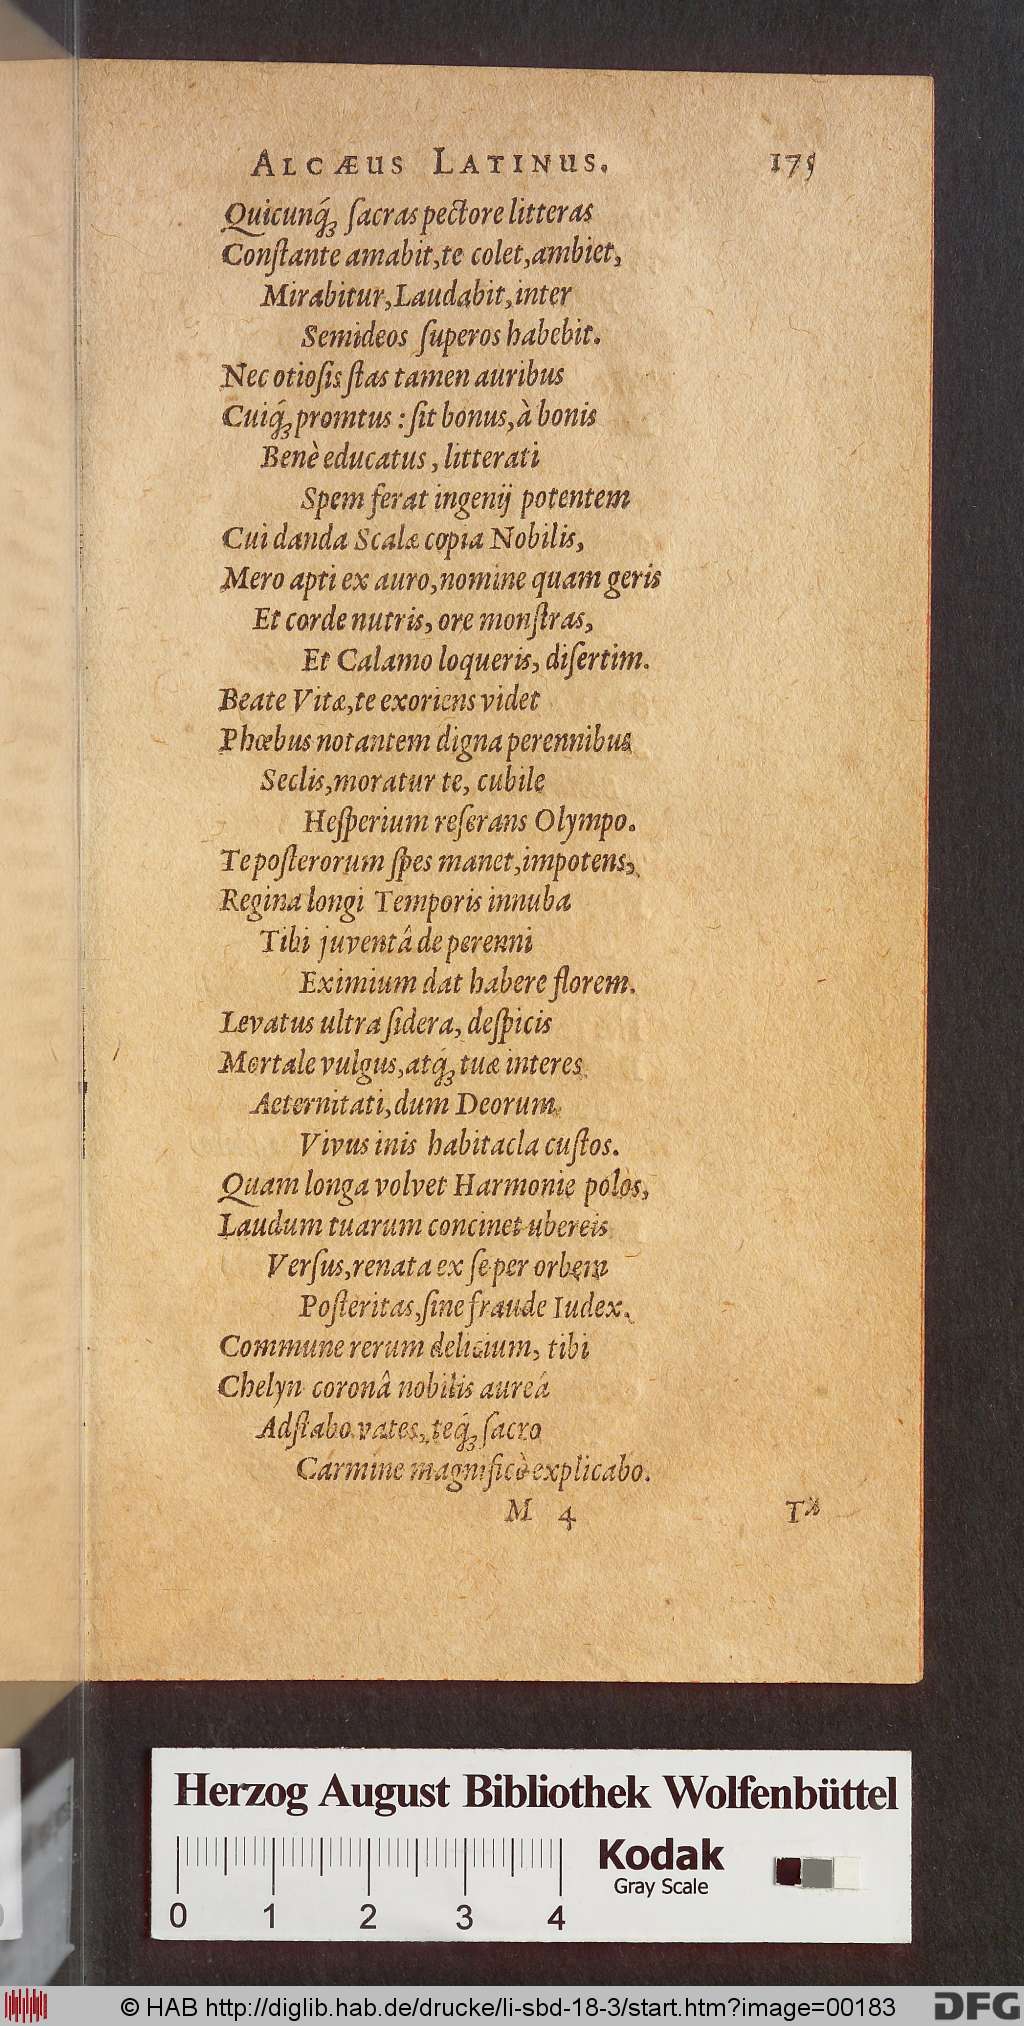 ALCÆUS LATINUS. 175
Quicunq́ꝫ ſacras pectore litteras
Conſtante amabit,te colet,ambiet,
Mirabitur,Laudabit,inter
Semideos ſuperos habebit.
Nec otioſis ſtas tamen auribus
Cuiq́ꝫ promtus : ſit bonus,à bonis
Benè educatus, litterati
Spem ferat ingenij potentem
Cui danda Scalæ copia Nobilis,
Mero apti ex auro,nomine quam geris
Et corde nutris, ore monſtras,
Et Calamo loqueris, diſertim.
Beate Vitæ,te exoriens videt
Phœbus notantem digna perennibus
Seclis,moratur te, cubile
Heſperium reſerans Olympo.
Te poſterorum ſpes manet,impotens,
Regina longi Temporis innuba
Tibi juventâ de perenni
Eximium dat habere florem.
Levatus ultra ſidera, deſpicis
Mortale vulgus,atq́ꝫ tuæ interes
Aeternitati,dum Deorum
Vivus inis habitacla cuſtos.
Quam longa volvet Harmonie polos,
Laudum tuarum concinet ubereis
Verſus,renata ex ſe per orbem
Poſteritas,ſine fraude Iudex.
Commune rerum delicium, tibi
Chelyn coronâ nobilis aureâ
Adſtabo vates, teq́ꝫ ſacro
Carmine magnificè explicabo.
M 4 Ta
Herzog August Bibliothek Wolfenbüttel
Kodak
Gray Scale
0 1 2 3 4
© HAB http://diglib.hab.de/drucke/li-sbd-18-3/start.htm?image=00183 DFG